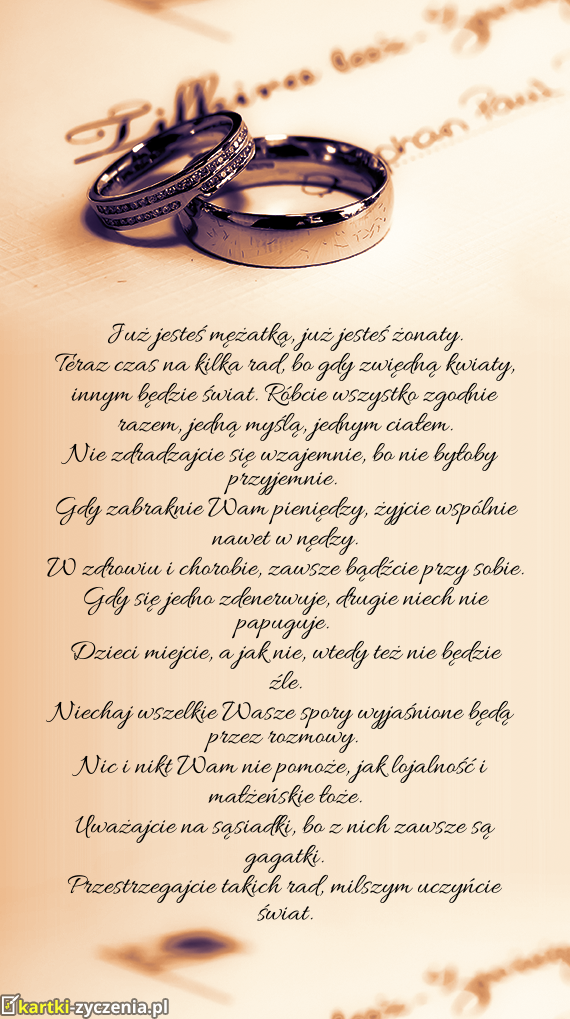 Już jesteś mężatką, już jesteś żonaty.
Teraz czas na kilka rad, bo gdy zwiędną kwiaty,
innym będzie świat. Róbcie wszystko zgodnie
razem, jedną myślą, jednym ciałem.
Nie zdradzajcie się wzajemnie, bo nie byłoby
przyjemnie.
Gdy zabraknie Wam pieniędzy, żyjcie wspólnie
nawet w nędzy.
W zdrowiu i chorobie, zawsze bądźcie przy sobie.
Gdy się jedno zdenerwuje, drugie niech nie
papuguje.
Dzieci miejcie, a jak nie, wtedy też nie będzie
źle.
Niechaj wszelkie Wasze spory wyjaśnione będą
przez rozmowy.
Nic i nikt Wam nie pomoże, jak lojalność i
małżeńskie łoże.
Uważajcie na sąsiadki, bo z nich zawsze są
gagatki.
Przestrzegajcie takich rad, milszym uczyńcie
świat.
kartki-zyczenia.pl